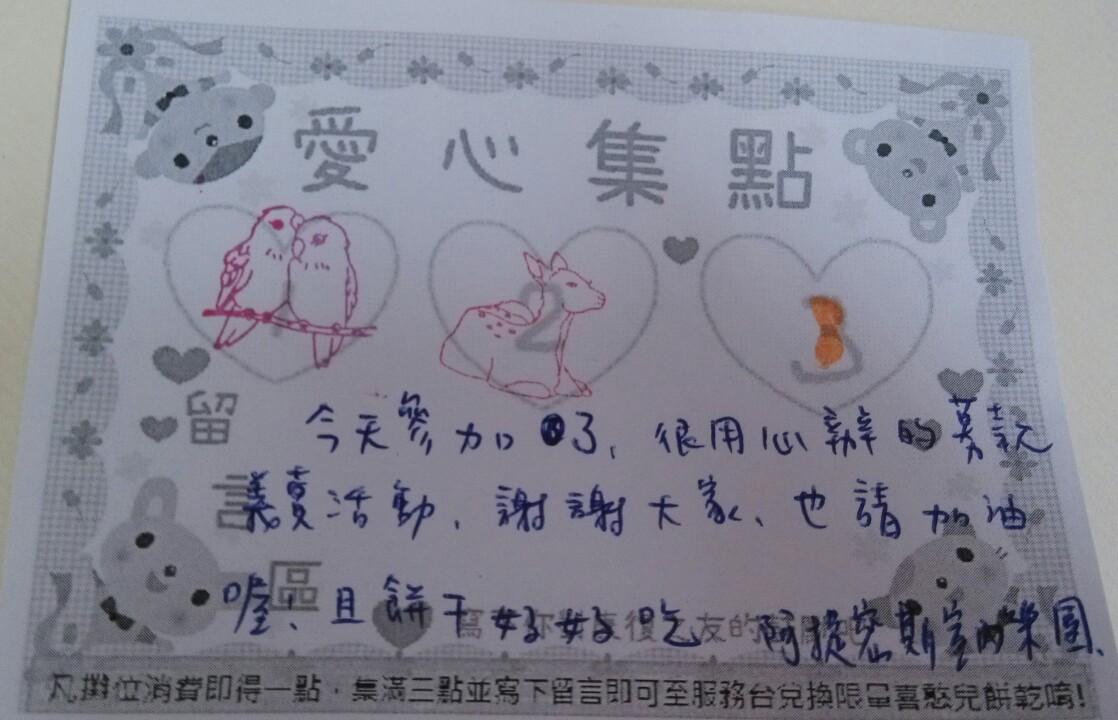 愛心集點
2
3
留言區
今天參加了,很用心辦的募款
義賣活動、謝謝大家、也請加油
喔!且餅干好好吃
阿捷密斯室內樂團、
凡攤位消費即得一點,集滿三點並寫下留言即可至服務台兌換限量喜憨兒餅乾唷!